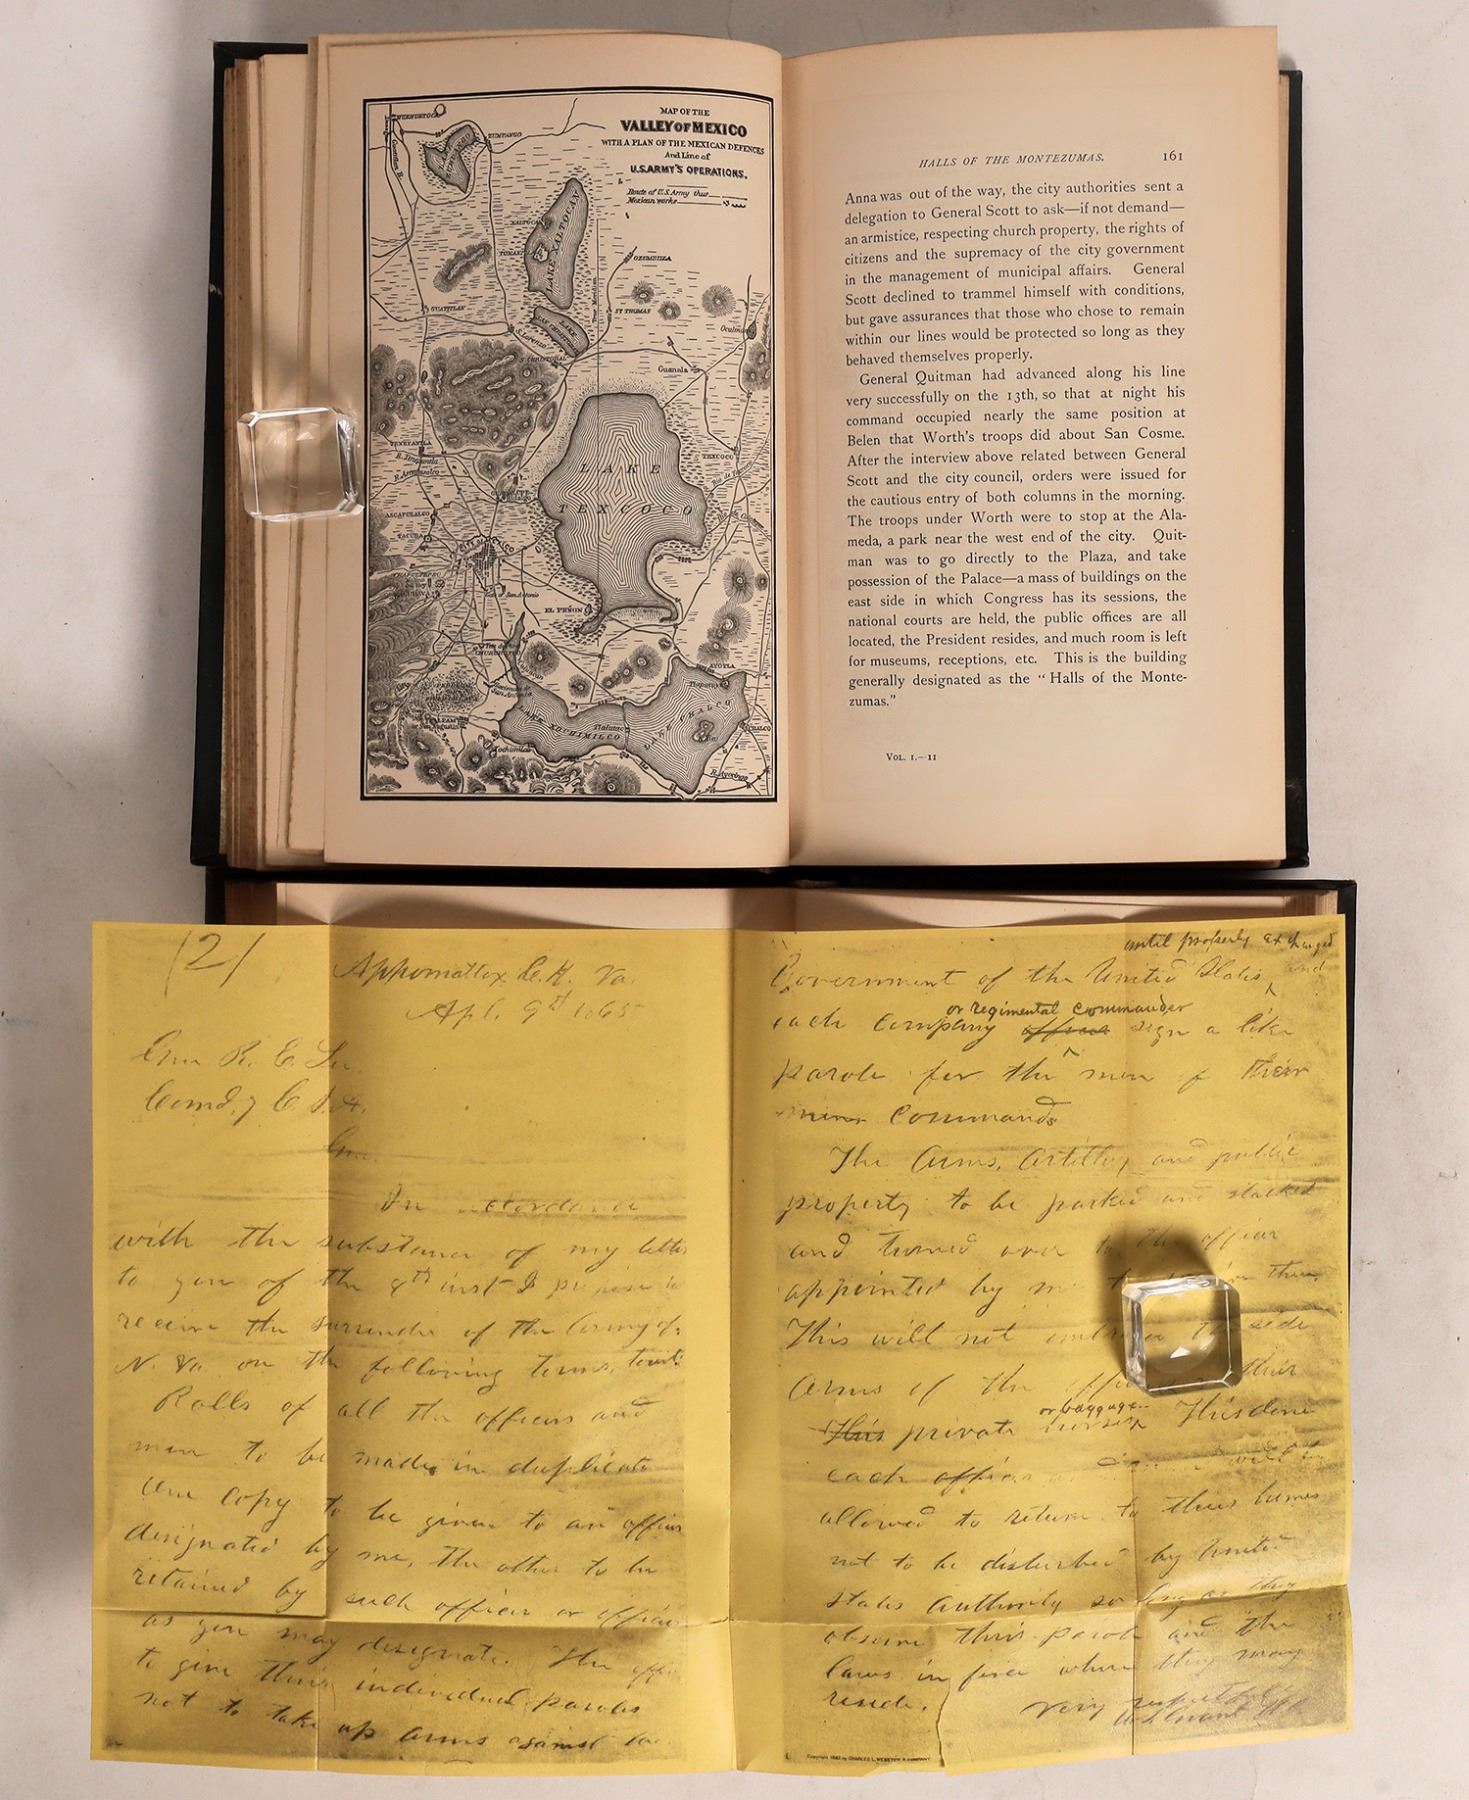 MAP OF THE
VALLEY OF MEXICO
WITH A PLAN OF THE MEXICAN DEFENCES
And Line of
U.S. ARMY'S OPERATIONS.
Route of U.S. Army thus
Mexican works
ZUMPANGO
LAKE XALTOCAN
OZUMBILLA
GUATITLAN
ST THOMAS
S. Lorenzo
LAKE
SAN CRISTOVAL
S. CHRISTOBAL
Guanala
TEXCOCO
LAKE
TEXCOCO
TACUBA
CITY OF MEXICO
San Antonio
EL PEÑON
AYOTLA
LAKE XOCHIMILCO
LAKE CHALCO
CHALCO
HALLS OF THE MONTEZUMAS. 161
Anna was out of the way, the city authorities sent a
delegation to General Scott to ask—if not demand—
an armistice, respecting church property, the rights of
citizens and the supremacy of the city government
in the management of municipal affairs. General
Scott declined to trammel himself with conditions,
but gave assurances that those who chose to remain
within our lines would be protected so long as they
behaved themselves properly.
General Quitman had advanced along his line
very successfully on the 13th, so that at night his
command occupied nearly the same position at
Belen that Worth's troops did about San Cosme.
After the interview above related between General
Scott and the city council, orders were issued for
the cautious entry of both columns in the morning.
The troops under Worth were to stop at the Ala-
meda, a park near the west end of the city. Quit-
man was to go directly to the Plaza, and take
possession of the Palace—a mass of buildings on the
east side in which Congress has its sessions, the
national courts are held, the public offices are all
located, the President resides, and much room is left
for museums, receptions, etc. This is the building
generally designated as the “Halls of the Monte-
zumas.”
VOL. I.—11
/2/
Appomattox C. H. Va.
Apl. 9th 1865
Gen R. E. Lee
Comd.g C S A.
Gen.
In accordance
with the substance of my letter
to you of the 8th inst I propose to
receive the surrender of the Army of
N. Va. on the following terms, towit:
Rolls of all the officers and
men to be made in duplicate
One copy to be given to an officer
designated by me, the other to be
retained by such officer or officers
as you may designate. The
to give their individual paroles
not to take up arms against the
until properly exchanged
Government of the United States and
or regimental commander
each company officer sign a like
parole for the men of their
commands
The Arms, Artillery and public
property to be parked and stacked
and turned over to the officer
appointed by me to receive them.
This will not embrace the side
Arms of the officers their
or baggage.
This private horses This done
each officer and man will be
allowed to return to their homes
not to be disturbed by United
States Authority so long as they
observe their parole and the
laws in force where they may
reside.
Very respectfully
U.S. Grant
Copyright 1885 by CHARLES L. WEBSTER & COMPANY